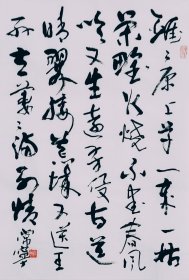 離〻原上草一歲一枯
榮野火燒不盡春風
吹又生遠芳侵古道
晴翠接荒城又送王
孫去萋〻滿別情